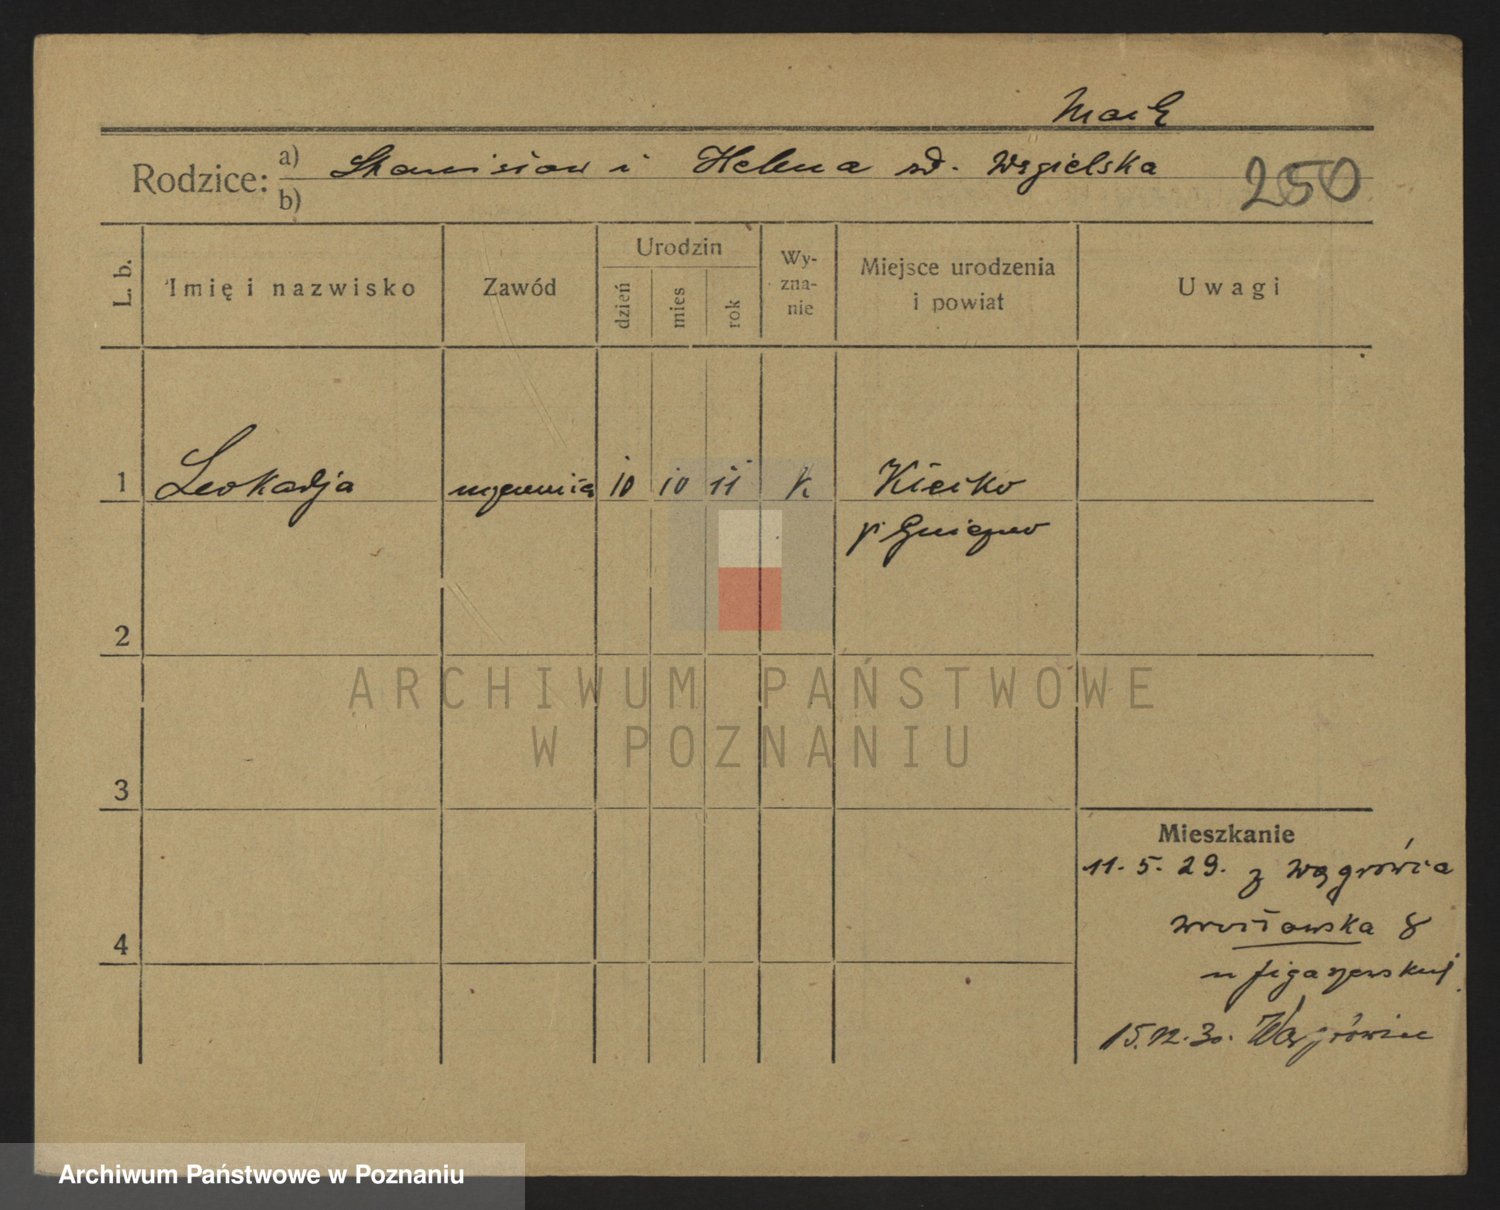 Rodzice: a) Stanisław i Helena zd. Węgielska 250
b)
L. b. Imię i nazwisko Zawód Urodzin dzień mies rok Wy-zna-nie Miejsce urodzenia i powiat Uwagi
1 Leokadja uczennica 10 10 11 k Kłecko
p. Gniezno
2
ARCHIWUM PAŃSTWOWE
W POZNANIU
3
Mieszkanie
11. 5. 29. z Wągrówca
4 Wrocławska 8
u
15.12.30. Wągrówiec
Archiwum Państwowe w Poznaniu